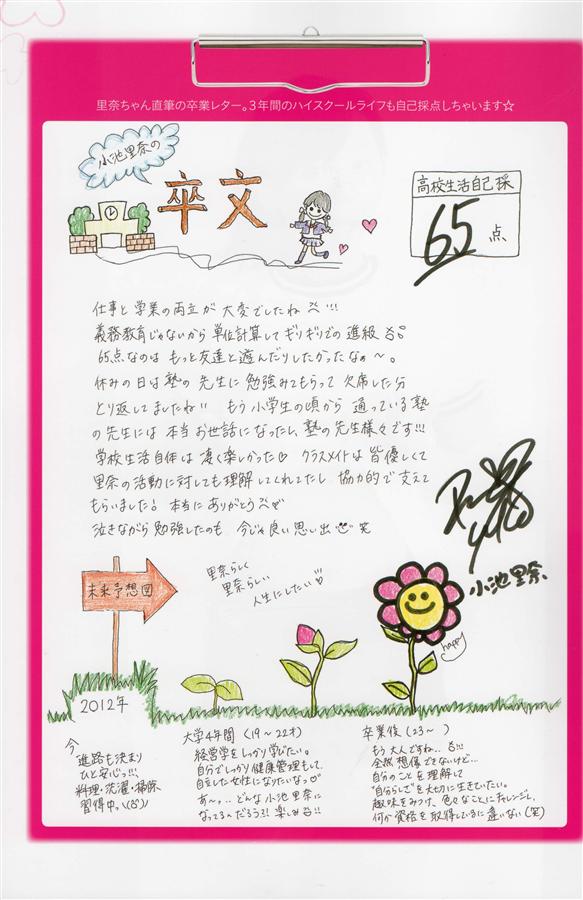 里奈ちゃん直筆の卒業レター。3年間のハイスクールライフも自己採点しちゃいます☆
小池里奈の
卒文
高校生活自己採
65点
仕事と学業の両立が大変でしたね!!!
義務教育じゃないから単位計算してギリギリでの進級
65点なのはもっと友達と遊んだりしたかったなぁ〜。
休みの日は塾の先生に勉強みてもらって欠席した分
とり返してましたね!! もう小学生の頃から通っている塾
の先生には本当お世話になったし、塾の先生様々です!!!
学校生活自体は凄く楽しかった♡ クラスメイトは皆優しくて
里奈の活動に対しても理解してくれてたし協力的で支えて
もらいました! 本当にありがとう
泣きながら勉強したのも今じゃ良い思い出 笑
小池里奈
未来予想図
里奈らしく
里奈らしい
人生にしたい♡
happy
2012年
今
進路も決まり
ひと安心っ!!!
料理・洗濯・掃除
習得中。
大学4年間(19〜22才)
経営学をしっかり学びたい。
自分でしっかり健康管理もして、
自立した女性になりたいなっ
あ〜っ..どんな小池里奈に
なってるんだろう?! 楽しみ!!
卒業後(23〜 )
もう大人ですね..!!!
全然想像できないけど...
自分のことを理解して
"自分らしさ"を大切に生きていたい。
趣味をみつけ、色々なことにチャレンジし、
何か資格を取得しているに違いない(笑)